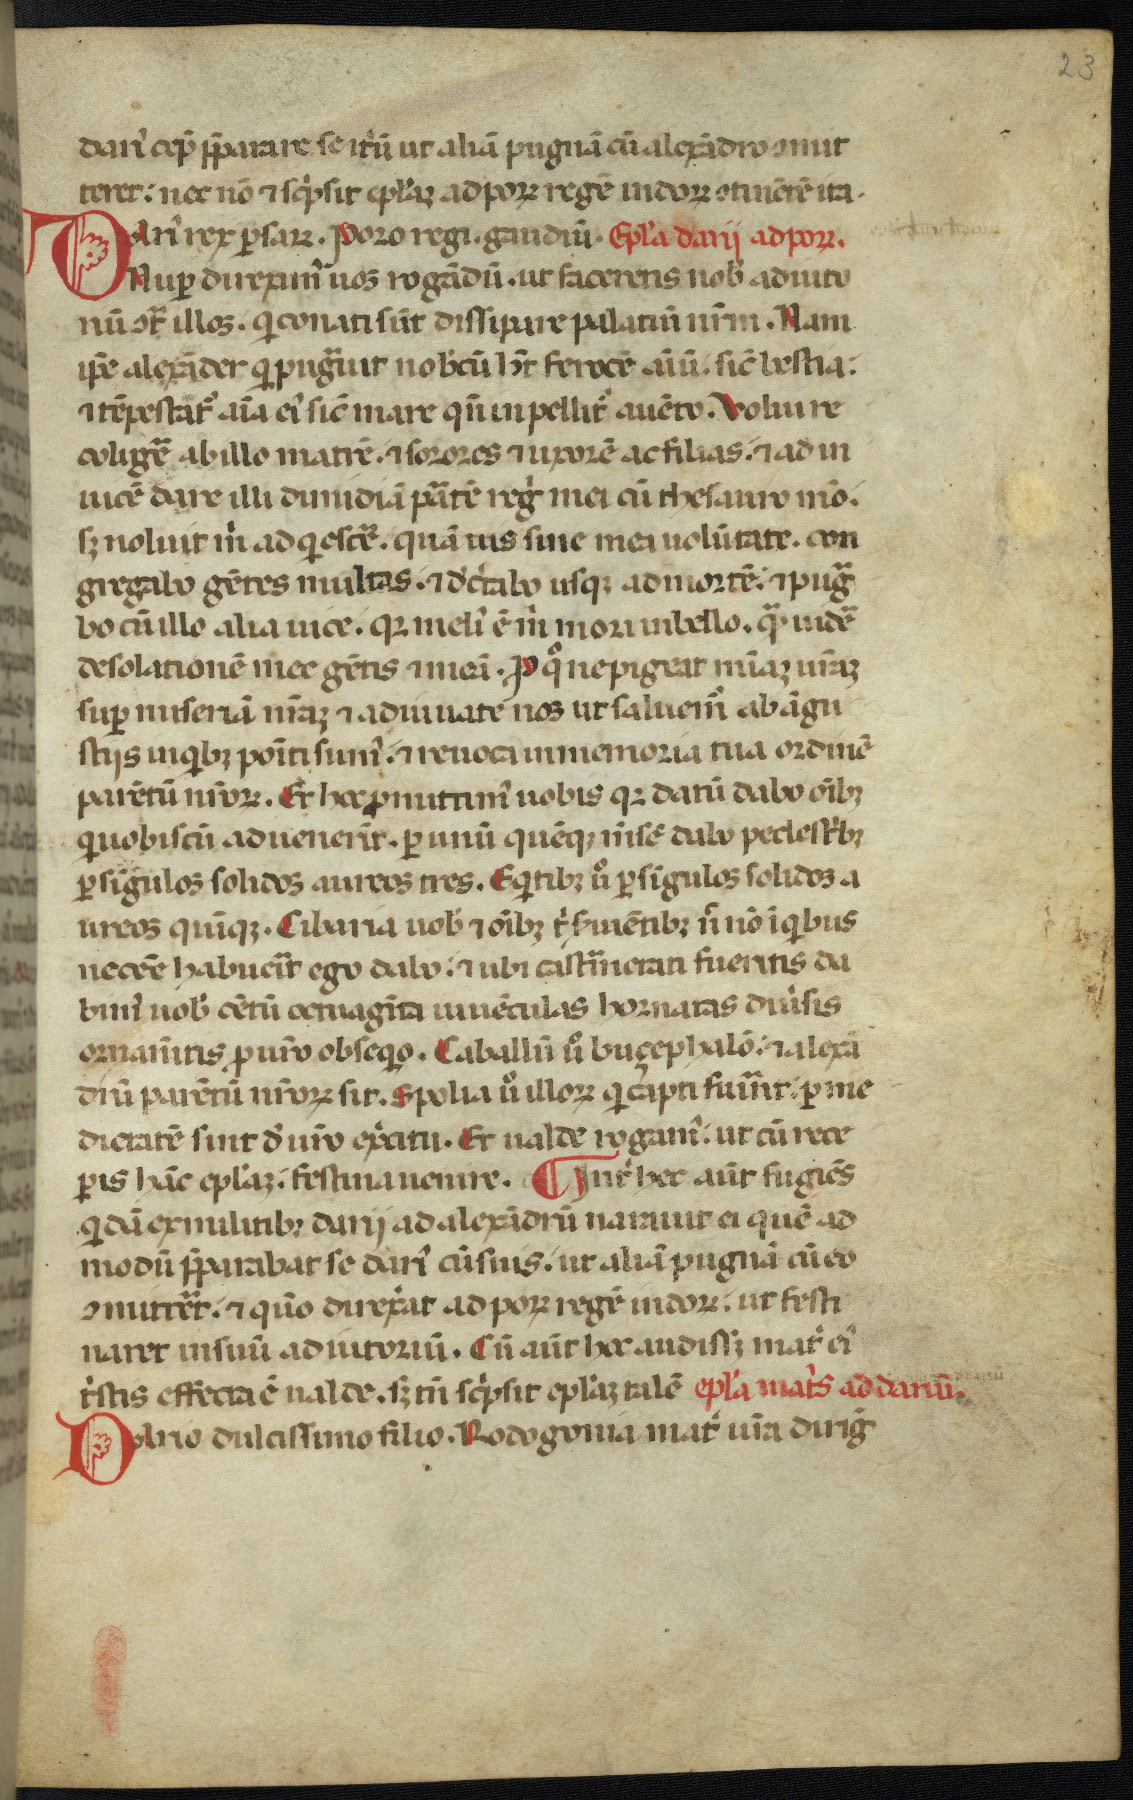 23
dari᷒ cep̄ p̄parare se itr̄ū ut aliā pugnā cū alexādro ꝯmit
teret: nec nō ⁊ sc̓psit epl̓az ad porꝝ regē indorꝝ ꝯtinētē ita.
Dari᷒ rex ꝑsarꝝ. Poro regi. gaudiū. Epl̓a darij ad porꝝ.
Nuꝑ direxim᷒ uos rogādū. ut faceretis nob̓ adiuto
riū ꝯt̄ illos. qi conati sūt dissipare palatiū nr̄m. Nam
ip̄e alexāder qi pugūit nobcū h̄t ferocē aīū. sic̄ bestia:
⁊ tēpestat᷒ aīa ei᷒ sic̄ mare qn̄ inpellit᷒ auēto. Volui re
coligē ab illo matrē. ⁊ sorores ⁊ uxorē ac filias. ⁊ ad in
uicē dare illi dimidiā ꝑtē regi mei cū thesauro mō.
sꝫ noluit m̓ adqiescē. quā uis sine mei uolūtate. con
gregabo gētes multas. ⁊ d̓c̓tabo usqꝫ ad mortē. ⁊ pug̃
bo cū illo alia uice. qꝛ meli᷒ ē m̓ mori in bello. q̃ uidē
desolationē mee gētis ⁊ meā. Pqͦ ne pigeat mīaꝫ ur̄aꝫ
suꝑ miseriā nr̄aꝫ ⁊ adiuuate nos ut saluem᷒ ab āgu
stijs in qibꝫ poīti sum᷒. ⁊ reuoca in memoria tua ordinē
parētū nr̄orꝝ. Et hec ꝓmittim᷒ uobis qꝛ datū dabo oībꝫ
qi uobiscū aduenerīt. ꝑ unū quēqꝫ mēsē dabo pedest̓bꝫ
ꝑ sīgulos solidos aureos tres. Eqitibꝫ uͦ ꝑ sīgulos solidos a
ureos quīqꝫ. Cibaria uob̓ ⁊ oībꝫ t̓ s̓uiētibꝫ n̄ nō ī qibus
necc̄e habuerīt ego dabo. ⁊ ubi cast̃metati fueritis da
bim᷒ uob̓ cētū octuagīta iuuēculas hornatas diu̓sis
ornam̄tis ꝓ uīo obseqio. Caballū uͦ bucephalō. ⁊ alexā
driū parētū nr̄orꝝ sit. Spolia uͦ illorꝝ qi capti fuīnt. ꝑ me
dietatē sint d̓ uīo ex̓citu. Et ualde rogam᷒. ut cū rece
ꝑis hāc epl̓aꝫ. festina uenire. Int̓ hec aūt fugiēs
qidā ex militibꝫ darij ad alexādrū narauit ei quē ad
modū p̄parabat se dari᷒ cū suis. ut aliā pugnā cū eo
ꝯmitt̄et. ⁊ quō direx̓at ad porꝝ regē indorꝝ. ut festi
naret in suū adiutoriū. Cū aūt hec audissꝫ mat̓ ei᷒
t̓stis effecta ē ualde. sꝫ tn̄ sc̓psit epl̓aꝫ talē epl̓a mat̓s ad dariū.
Dario dulcissimo filio. Rodogonia mat̓ uīa dirig̓